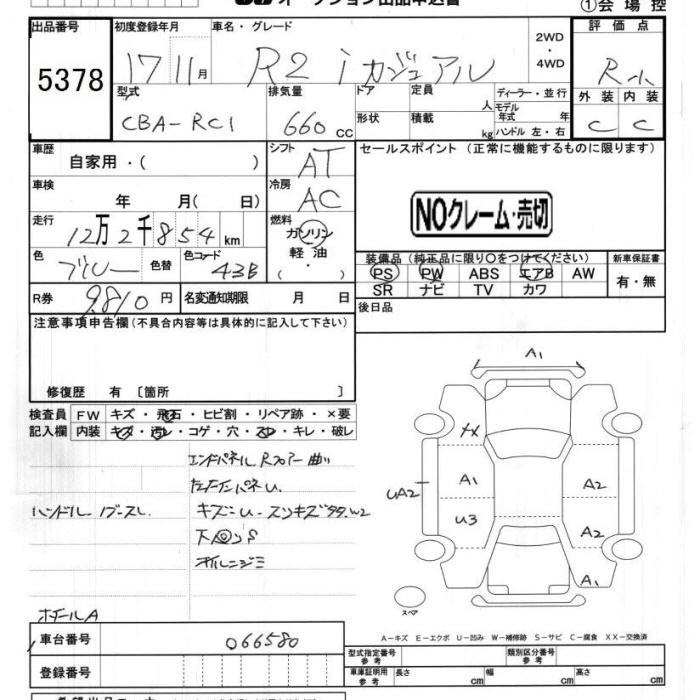 ①会場控
出品番号 初度登録年月 車名・グレード 2WD・4WD 評価点
5378 17 11月 R2 i カジュアル R
型式 排気量 ドア 定員 人 ディーラー・並行 外装 内装
CBA-RC1 660cc 形状 積載 kg モデル年式 年 ハンドル 左・右 C C
車歴 自家用・( ) シフト AT セールスポイント (正常に機能するものに限ります)
車検 年 月( 日) 冷房 AC
NOクレーム・売切
走行 12万2千854km 燃料 ガソリン・軽油( ・ )
色 ブルー 色替 色コード 43B
装備品 (純正品に限り○をつけてください) 新車保証書
PS PW ABS エアB AW 有・無
SR ナビ TV カワ
R券 9,810円 名変通知期限 月 日 後日品
注意事項申告欄(不具合内容等は具体的に記入して下さい)
修復歴 有 〔箇所 〕
検査員 FW キズ・飛石・ヒビ割・リペア跡・×要
記入欄 内装 キズ・汚レ・コゲ・穴・スレ・キレ・破レ
エンドパネル Rフロアー曲り
ハンドル
キズ
ホイールA
A1
A1 A2
UA2 U3 A2
A1
スペア
A―キズ E―エクボ U―凹み W―補修跡 S―サビ C―腐食 XX―交換済
車台番号 066580 型式指定番号 参考 類別区分番号 参考
登録番号 車庫証明用 参考 長さ cm 幅 cm 高さ cm